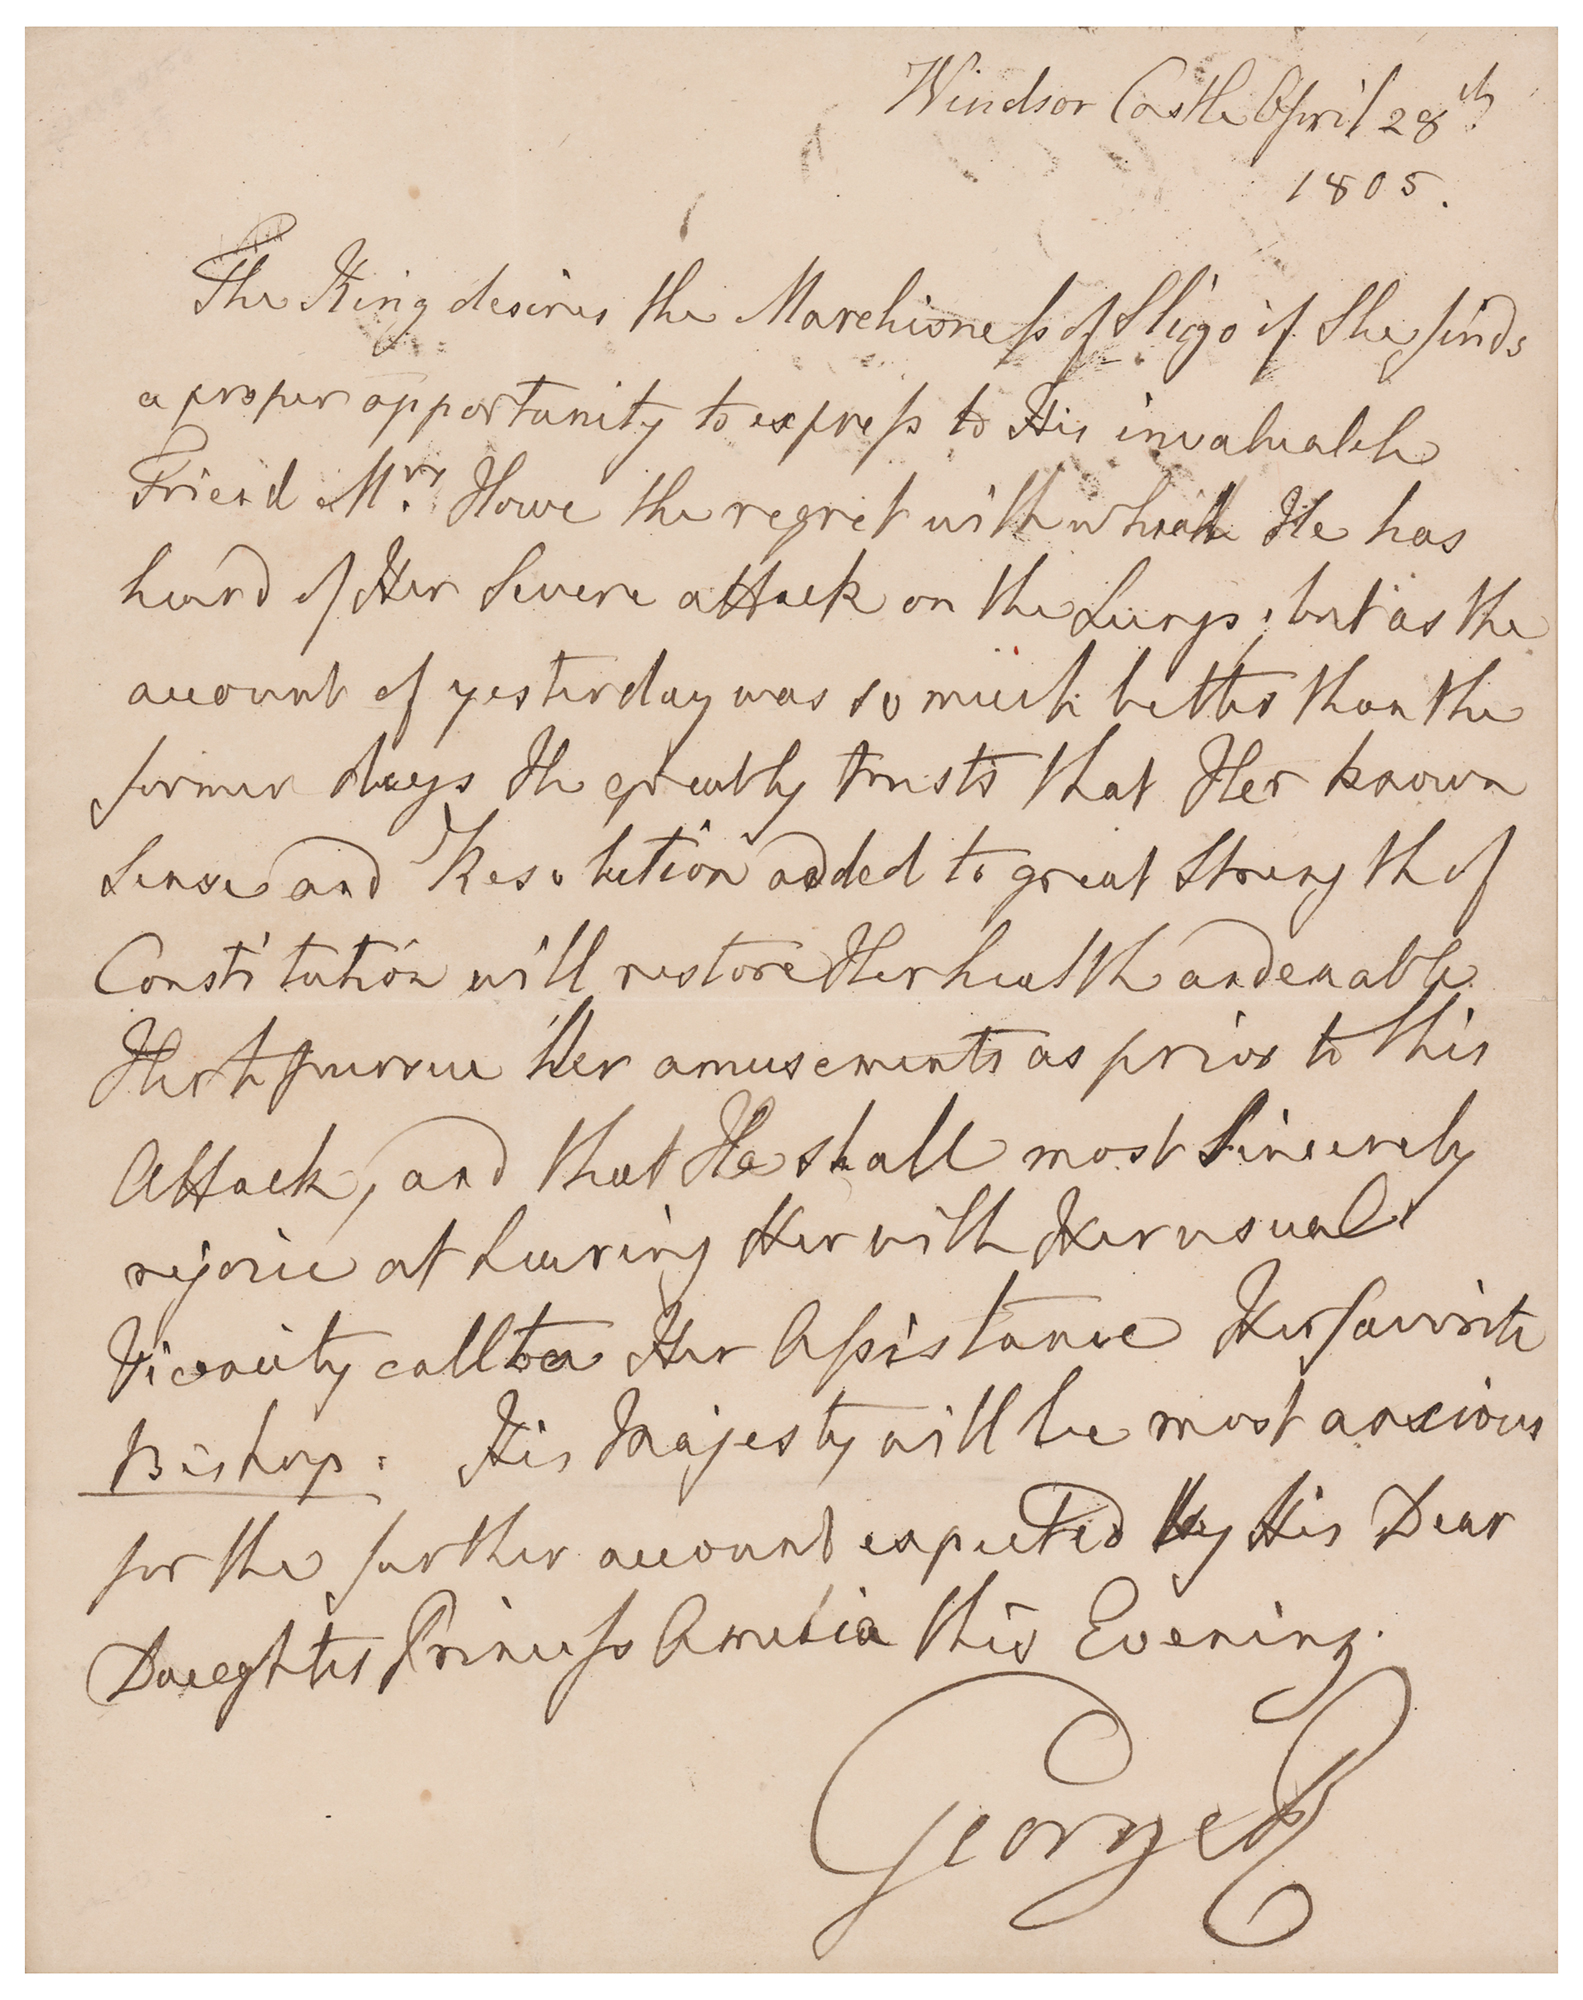 Windsor Castle April 28th.
1805.
The King desires the Marchioness of Sligo if She finds
a proper opportunity to express to His invaluable
Friend Mrs. Howe the regret with which He has
heard of Her Severe attack on the Lungs; but as the
account of yesterday was so much better than the
former days He greatly trusts that Her known
Sense and Resolution added to great Strength of
Constitution will restore Her health and enable
Her to pursue Her amusements as prior to this
Attack, and that He shall most Sincerely
rejoice at hearing Her with Her usual
Vivacity call to Her Assistance Her favorite
Bishop. His Majesty will be most anxious
for the further account expected by His Dear
Daughter Princess Amelia this Evening.
George R